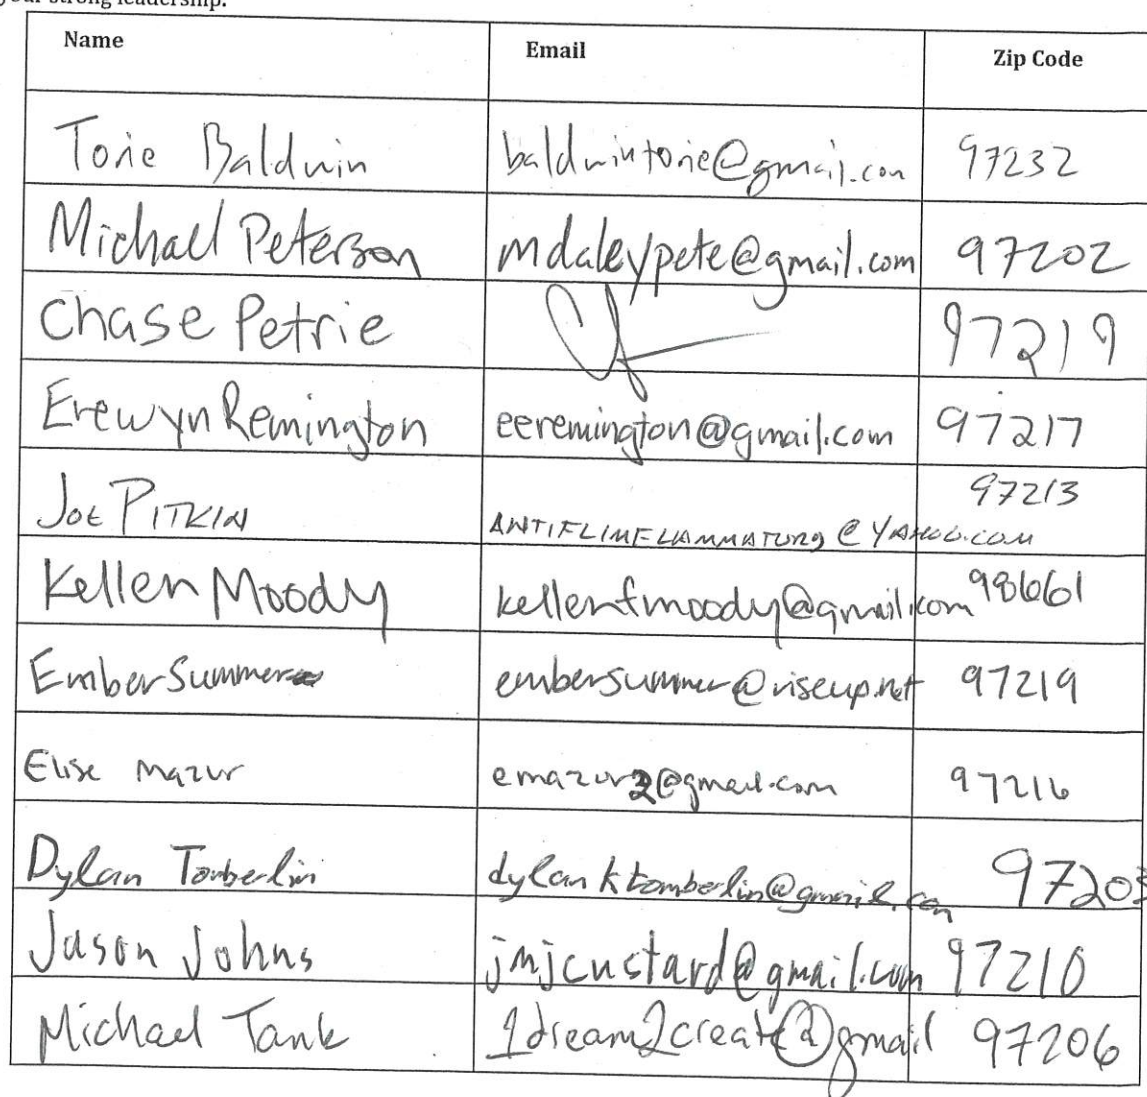 your strong leadership.
Name Email Zip Code
Torie Baldwin baldwintorie@gmail.com 97232
Michael Peterson mdaleypete@gmail.com 97202
Chase Petrie 97219
Erewyn Remington eeremington@gmail.com 97217
Joe PITKIN 97213
@YAHOO.COM
Kellen Moody kellenfmoody@gmail.com 98661
Ember Summer embersummer@riseup.net 97219
Elise Mazur emazur2@gmail.com 97216
Dylan Tomberlin dylanktomberlin@gmail.com 97203
Jason Johns jmjcustard@gmail.com 97210
Michael Tank 1dream2create@gmail 97206